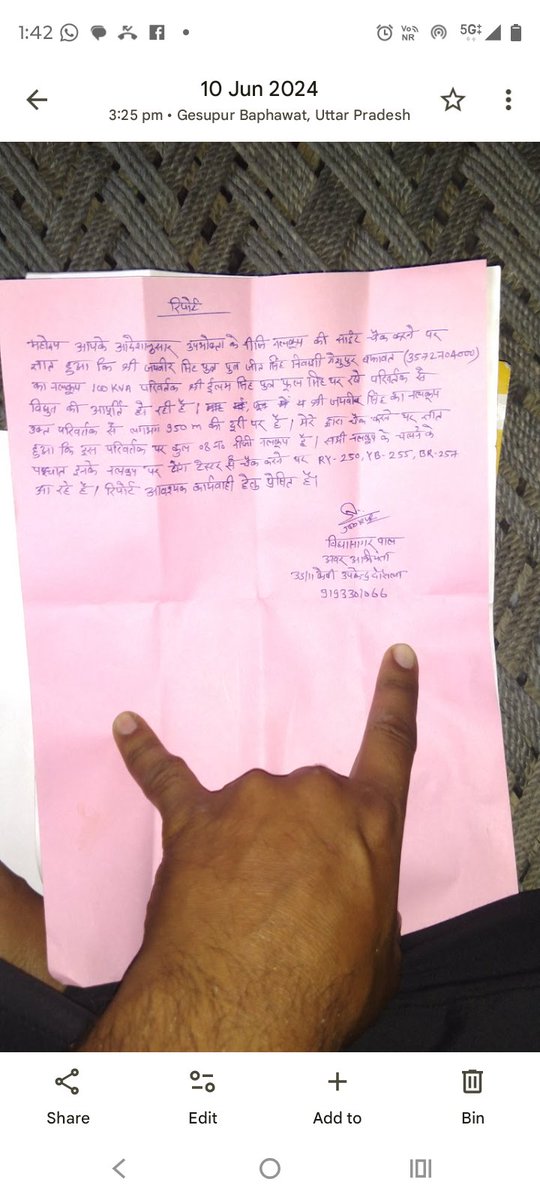 1:42
Vo)) NR
5G
10 Jun 2024
3:25 pm • Gesupur Baphawat, Uttar Pradesh
रिपोर्ट
महोदय आपके आदेशानुसार उपभोक्ता के निजि नलकूप की साईट चैक करने पर
ज्ञात हुआ कि श्री जयवीर सिंह पुत्र जीत सिंह निवासी गेसुपुर बफावत (3572704000)
का नलकूप 100 KVA परिवर्तक श्री ईलम सिंह पुत्र फूल सिंह पर रखे परिवर्तक से
विद्युत की आपूर्ति हो रही है। श्री जयवीर सिंह का नलकूप
उक्त परिवर्तक से लगभग 350 m की दूरी पर है। मेरे द्वारा चैक करने पर ज्ञात
हुआ कि इस परिवर्तक पर कुल 08 न० नीजी नलकूप है। सभी नलकूप के चलने के
पश्चात इनके नलकूप पर टैस्टर से चैक करने पर RY-250, YB-255, BR-257
आ रहे हैं। रिपोर्ट आवश्यक कार्यवाही हेतु प्रेषित है।
विद्यासागर पाल
अवर अभियंता
33/11 केवी उपकेन्द्र
9193301066
Share
Edit
Add to
Bin